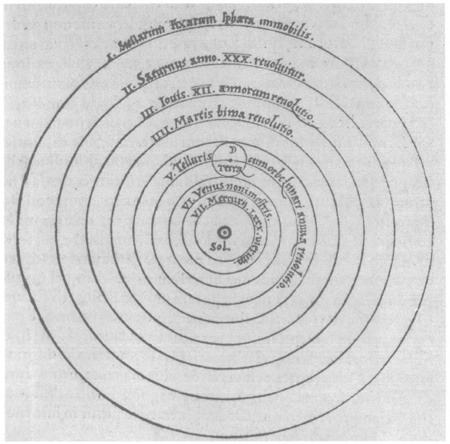 I. Stellarum fixarum sphæra immobilis.
II. Saturnus anno. XXX. revoluitur.
III. Iouis. XII. annorum revolutio.
IIII. Martis bima revolutio.
V. Telluris
Terra
cum orbe lunari annua revolutio.
VI. Venus nonimestris.
VII. Mercurij. lxxx. dierum.
Sol.